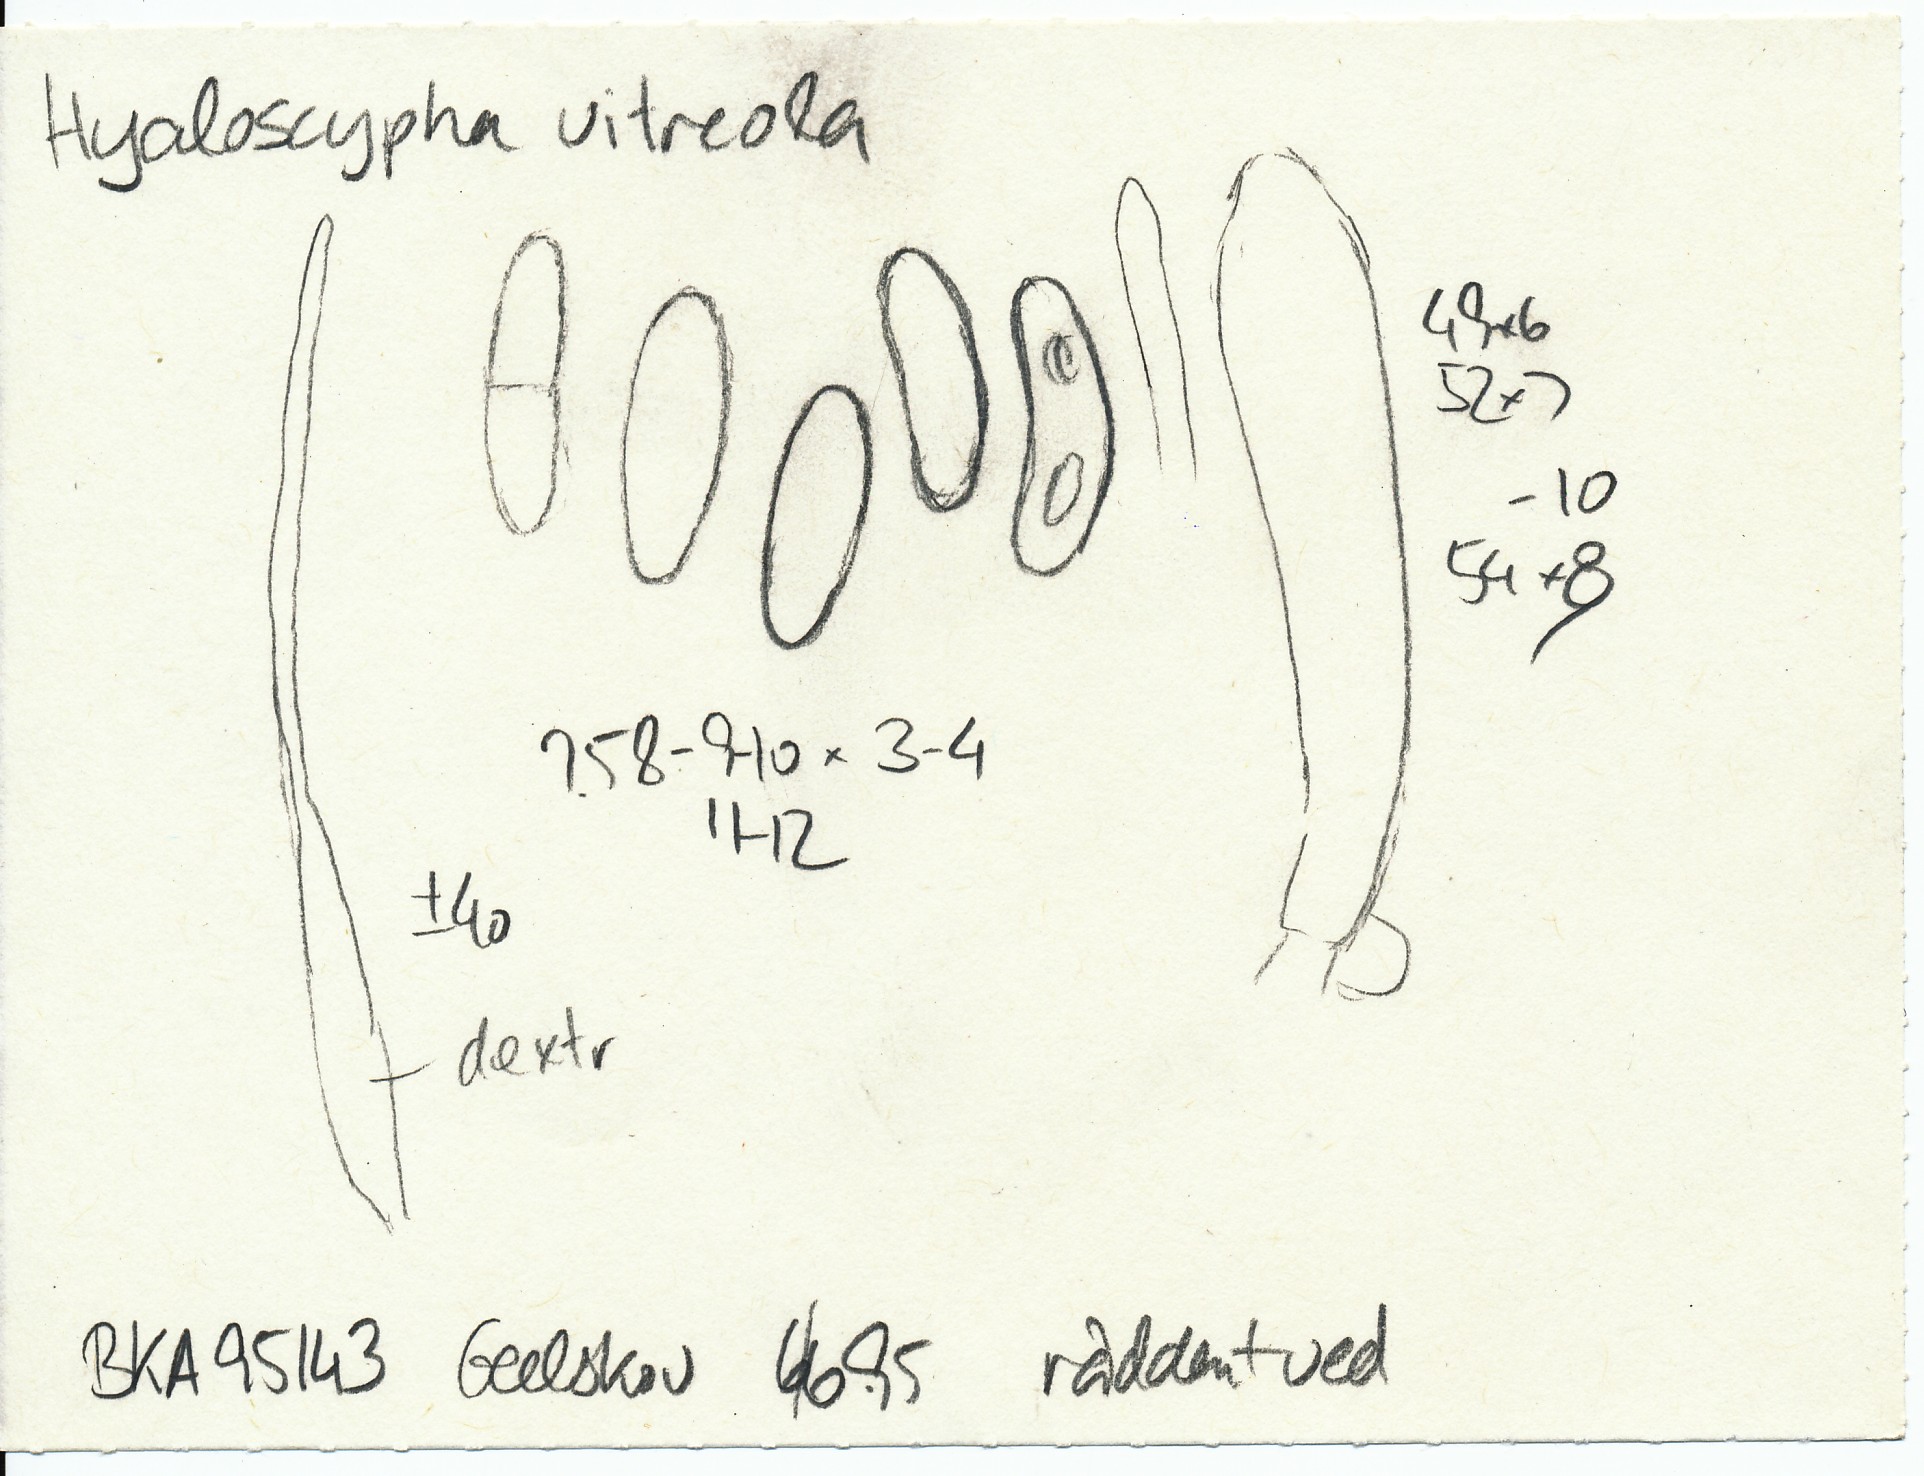 Hyaloscypha vitreola
49×6
52×7
-10
54×8
7.58-9-10 × 3-4
11-12
±40
dextr
BKA95143 Geelskov råddent ved